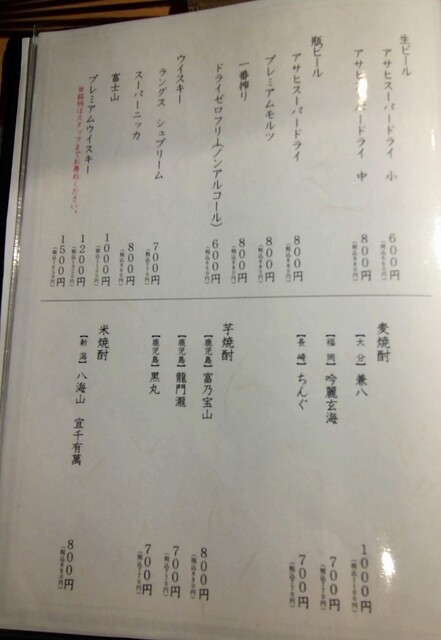 生ビール
アサヒスーパードライ 小 600円(税込660円)
アサヒスーパードライ 中 800円(税込880円)
瓶ビール
アサヒスーパードライ 800円(税込880円)
プレミアムモルツ 800円(税込880円)
一番搾り 800円(税込880円)
ドライゼロフリー(ノンアルコール) 600円(税込660円)
ウイスキー
ラングス シュプリーム 700円(税込770円)
スーパーニッカ 800円(税込880円)
富士山 1000円(税込1100円)
プレミアムウイスキー 1200円(税込1320円)
1500円(税込1650円)
※銘柄はスタッフまでお尋ねください。
麦焼酎
【大分】兼八 1000円(税込1100円)
【福岡】吟麗玄海 700円(税込770円)
【長崎】ちんぐ 700円(税込770円)
芋焼酎
【鹿児島】富乃宝山 800円(税込880円)
【鹿児島】龍門瀧 700円(税込770円)
【鹿児島】黒丸 700円(税込770円)
米焼酎
【新潟】八海山 宜千有萬 800円(税込880円)